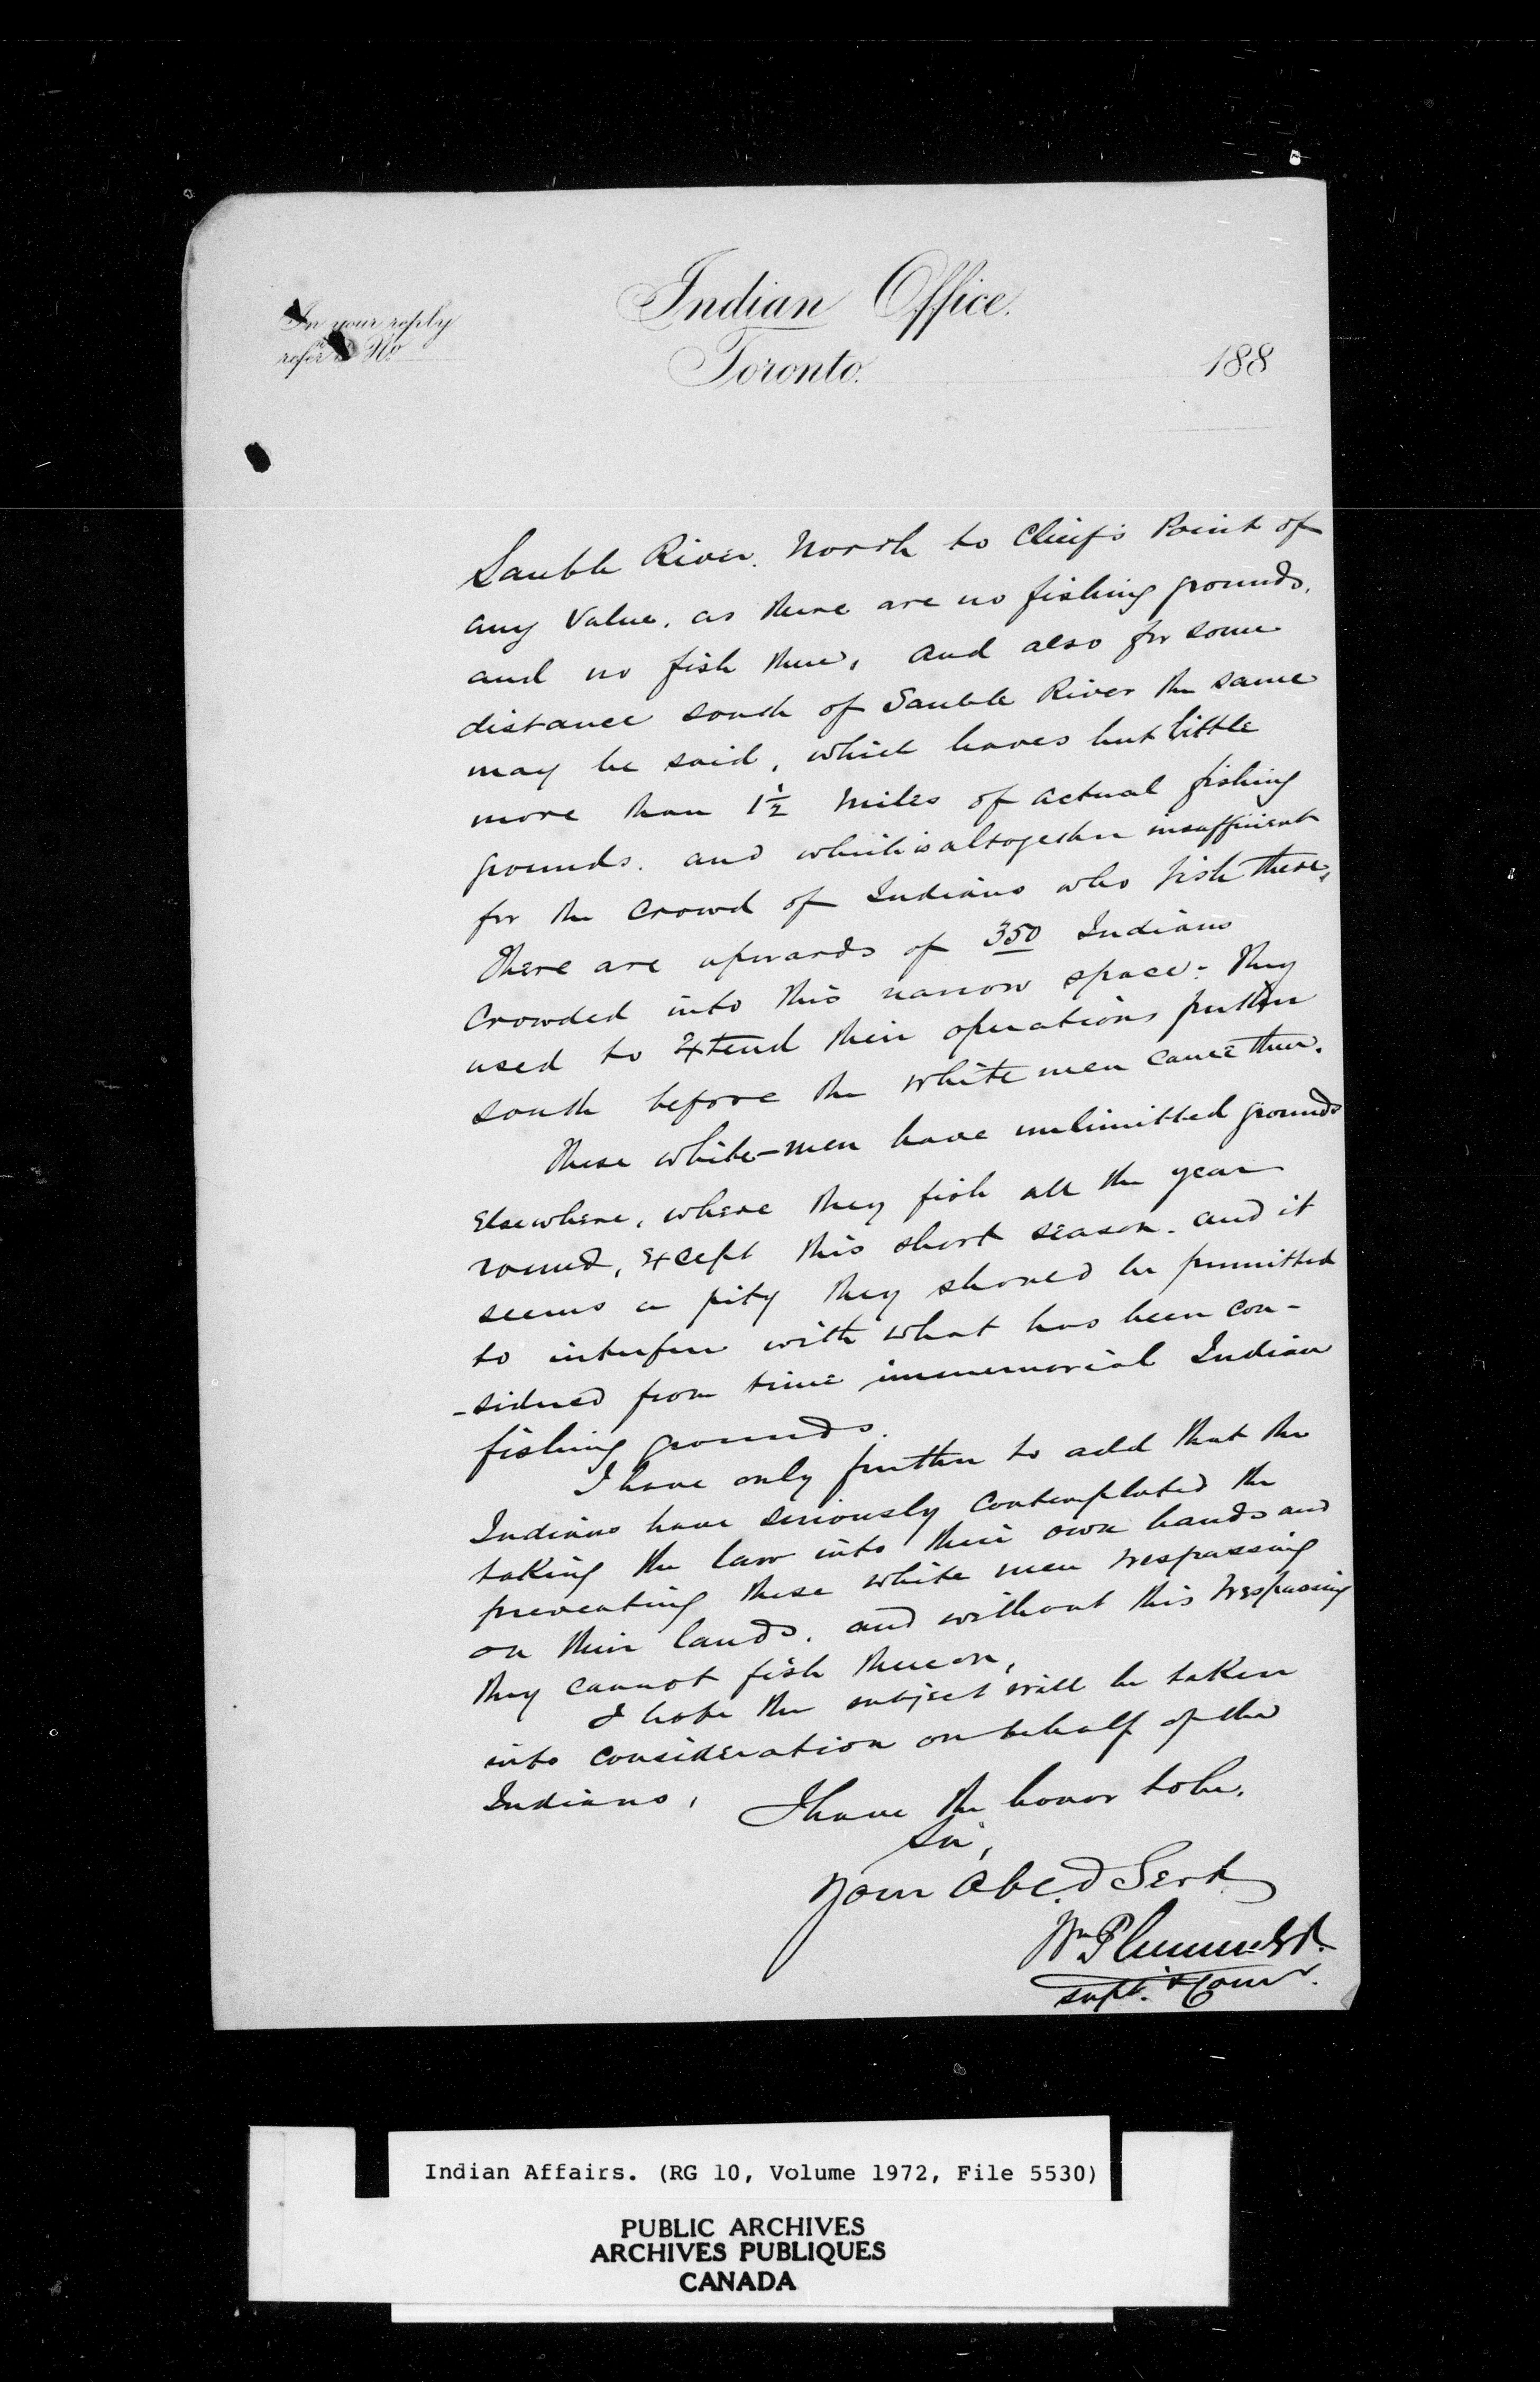 Indian Office.
In your reply
refer to No
Toronto. 188
Sauble River. North to Chief's Point of
any Value, as there are no fishing grounds,
and no fish there, and also for some
distance south of Sauble River the same
may be said, which leaves but little
more than 1½ miles of actual fishing
grounds. and which is altogether insufficient
for the crowd of Indians who fish there,
There are upwards of 350 Indians
crowded into this narrow space. They
used to Extend their operations further
south before the white men came there.
These white-men have unlimitted grounds
Elsewhere, where they fish all the year
round, Except this short season. and it
seems a pity they should be permitted
to interfere with what has been con-
-sidered from time immemorial Indian
fishing grounds.
I have only further to add that the
Indians have seriously contemplated the
taking the law into their own hands and
preventing these white men trespassing
on their lands, and without this trespassing
they cannot fish thereon,
I hope the subject will be taken
into consideration on behalf of the
Indians, I have the honor to be,
Sir,
Your Obed Servt
Wm Plummer
Supt. & Comr.
Indian Affairs. (RG 10, Volume 1972, File 5530)
PUBLIC ARCHIVES
ARCHIVES PUBLIQUES
CANADA